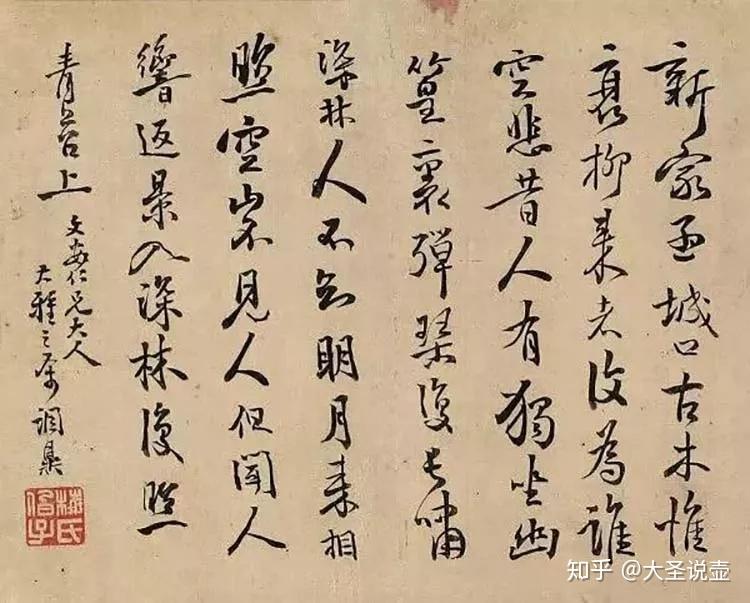 新家孟城口古木惟
衰柳来者復為誰
空悲昔人有獨坐幽
篁裏彈琴復長嘯
深林人不知明月来相
照空山不見人但聞人
響返景入深林復照
青苔上
文安仁兄大人
大雅之屬 調鼎
梅氏
知乎 @大圣说壶